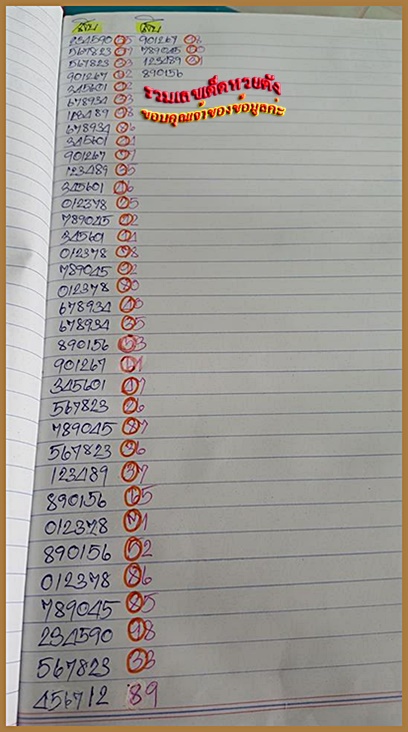 สิบ สิบ
234590 05 901267 06
567823 09 789045 00
567823 03 123489 01
901267 02 890156
345601 02
678934 03
123489 08
678934 06
345601
901267
123489 05
345601 06
012378 05
789045 02
345601 14
012378 98
789045 92
012378 80
678934 43
678934 35
890156 53
901267
345601 47
567823 26
789045 87
567823 36
123489 37
890156 65
012378 71
890156 52
012378 86
789045 85
234590 18
567823 33
456712 89
รวมเลขเด็ดหวยดัง
ขอบคุณเจ้าของข้อมูลค่ะ